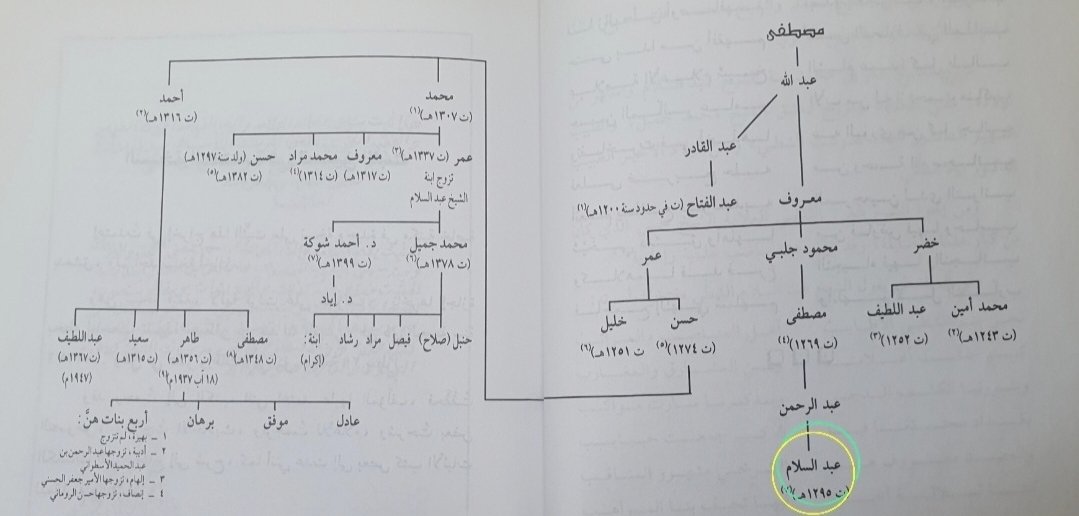 مصطفى
عبد الله
عبد القادر
معروف
عبد الفتاح (ت في حدود سنة ١٢٠٠هـ)(١)
خضر
محمود جلبي
عمر
محمد أمين
(ت ١٢٤٣هـ)(٢)
عبد اللطيف
(ت ١٢٥٢هـ)(٣)
مصطفى
(ت ١٢٦٩هـ)(٤)
حسن
(ت ١٢٧٤هـ)(٥)
خليل
(ت ١٢٥١هـ)(٦)
عبد الرحمن
عبد السلام
(ت ١٢٩٥هـ)
محمد
(ت ١٣٠٧هـ)(١)
أحمد
(ت ١٣١٦هـ)(٢)
عمر (ت ١٣٣٧هـ)(٣)
تزوج ابنة
الشيخ عبد السلام
معروف
(ت ١٣١٧هـ)
محمد مراد
(ت ١٣١٤هـ)(٤)
حسن (ولد سنة ١٢٩٧هـ)
(ت ١٣٨٢هـ)(٥)
محمد جميل
(ت ١٣٧٨هـ)(٦)
د. أحمد شوكة
(ت ١٣٩٩هـ)(٧)
د. إياد
حنبل (صلاح)
فيصل
مراد
رشاد
ابنة:
(إكرام)
مصطفى
(ت ١٣٤٨هـ)(٨)
طاهر
(ت ١٣٥٦هـ)
(١٨ آب ١٩٣٧م)(٩)
سعيد
(ت ١٣١٥هـ)
عبد اللطيف
(ت ١٣٦٧هـ)
(١٩٤٧م)
عادل
موفق
برهان
أربع بنات هنَّ:
١ ـ بهيرة، لم تتزوج
٢ ـ أديبة، تزوجها عبد الرحمن بن
عبد الحميد الأسطواني
٣ ـ إلهام، تزوجها الأمير جعفر الحسني
٤ ـ إنصاف، تزوجها حسن الروماني